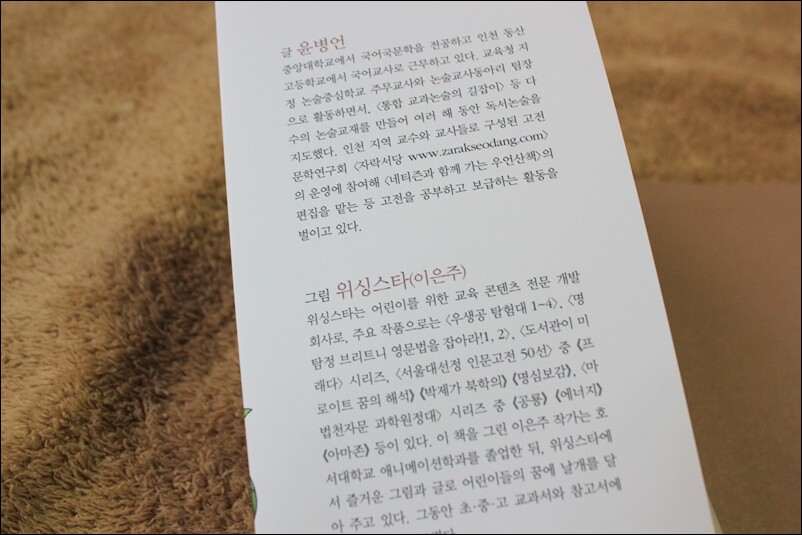 글 윤병언
중앙대학교에서 국어국문학을 전공하고 인천 동산
고등학교에서 국어교사로 근무하고 있다. 교육청 지
정 논술중심학교 주무교사와 논술교사동아리 팀장
으로 활동하면서, 〈통합 교과논술의 길잡이〉 등 다
수의 논술교재를 만들어 여러 해 동안 독서논술을
지도했다. 인천 지역 교수와 교사들로 구성된 고전
문학연구회 〈자락서당 www.zarakseodang.com〉
의 운영에 참여해 〈네티즌과 함께 가는 우언산책〉의
편집을 맡는 등 고전을 공부하고 보급하는 활동을
벌이고 있다.
그림 위싱스타(이은주)
위싱스타는 어린이를 위한 교육 콘텐츠 전문 개발
회사로, 주요 작품으로는 〈우생공 탐험대 1~4〉, 〈명
탐정 브리트니 영문법을 잡아라!1, 2〉, 〈도서관이 미
래다〉 시리즈, 〈서울대선정 인문고전 50선〉 중 《프
로이트 꿈의 해석》 《박제가 북학의》 《명심보감》, 〈마
법천자문 과학원정대〉 시리즈 중 《공룡》 《에너지》
《아마존》 등이 있다. 이 책을 그린 이은주 작가는 호
서대학교 애니메이션학과를 졸업한 뒤, 위싱스타에
서 즐거운 그림과 글로 어린이들의 꿈에 날개를 달
아 주고 있다. 그동안 초·중·고 교과서와 참고서에